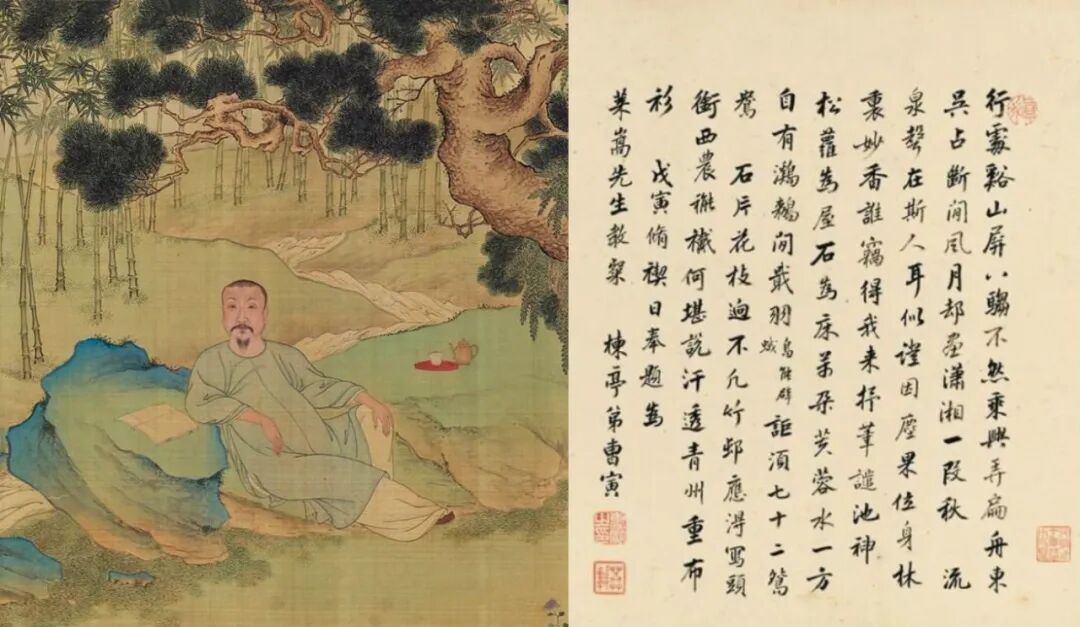 行處谿山屏八騶不然乘興弄扁舟東
吳占斷閒風月却畫瀟湘一段秋 流
泉聲在斯人耳似證因塵果位身林
裏妙香誰竊得我来抒筆譴池神
松蘿為屋石為床萬朵芙蓉水一方
自有鸂鶒閒戴羽鳥能辟蜮詎須七十二鴛
鴦 石片花枝迥不凡竹邨應淂寫頭
銜西農襏襫何堪說汗透青州重布
衫 戊寅脩禊日奉題為
萊嵩先生教粲 楝亭弟曹寅